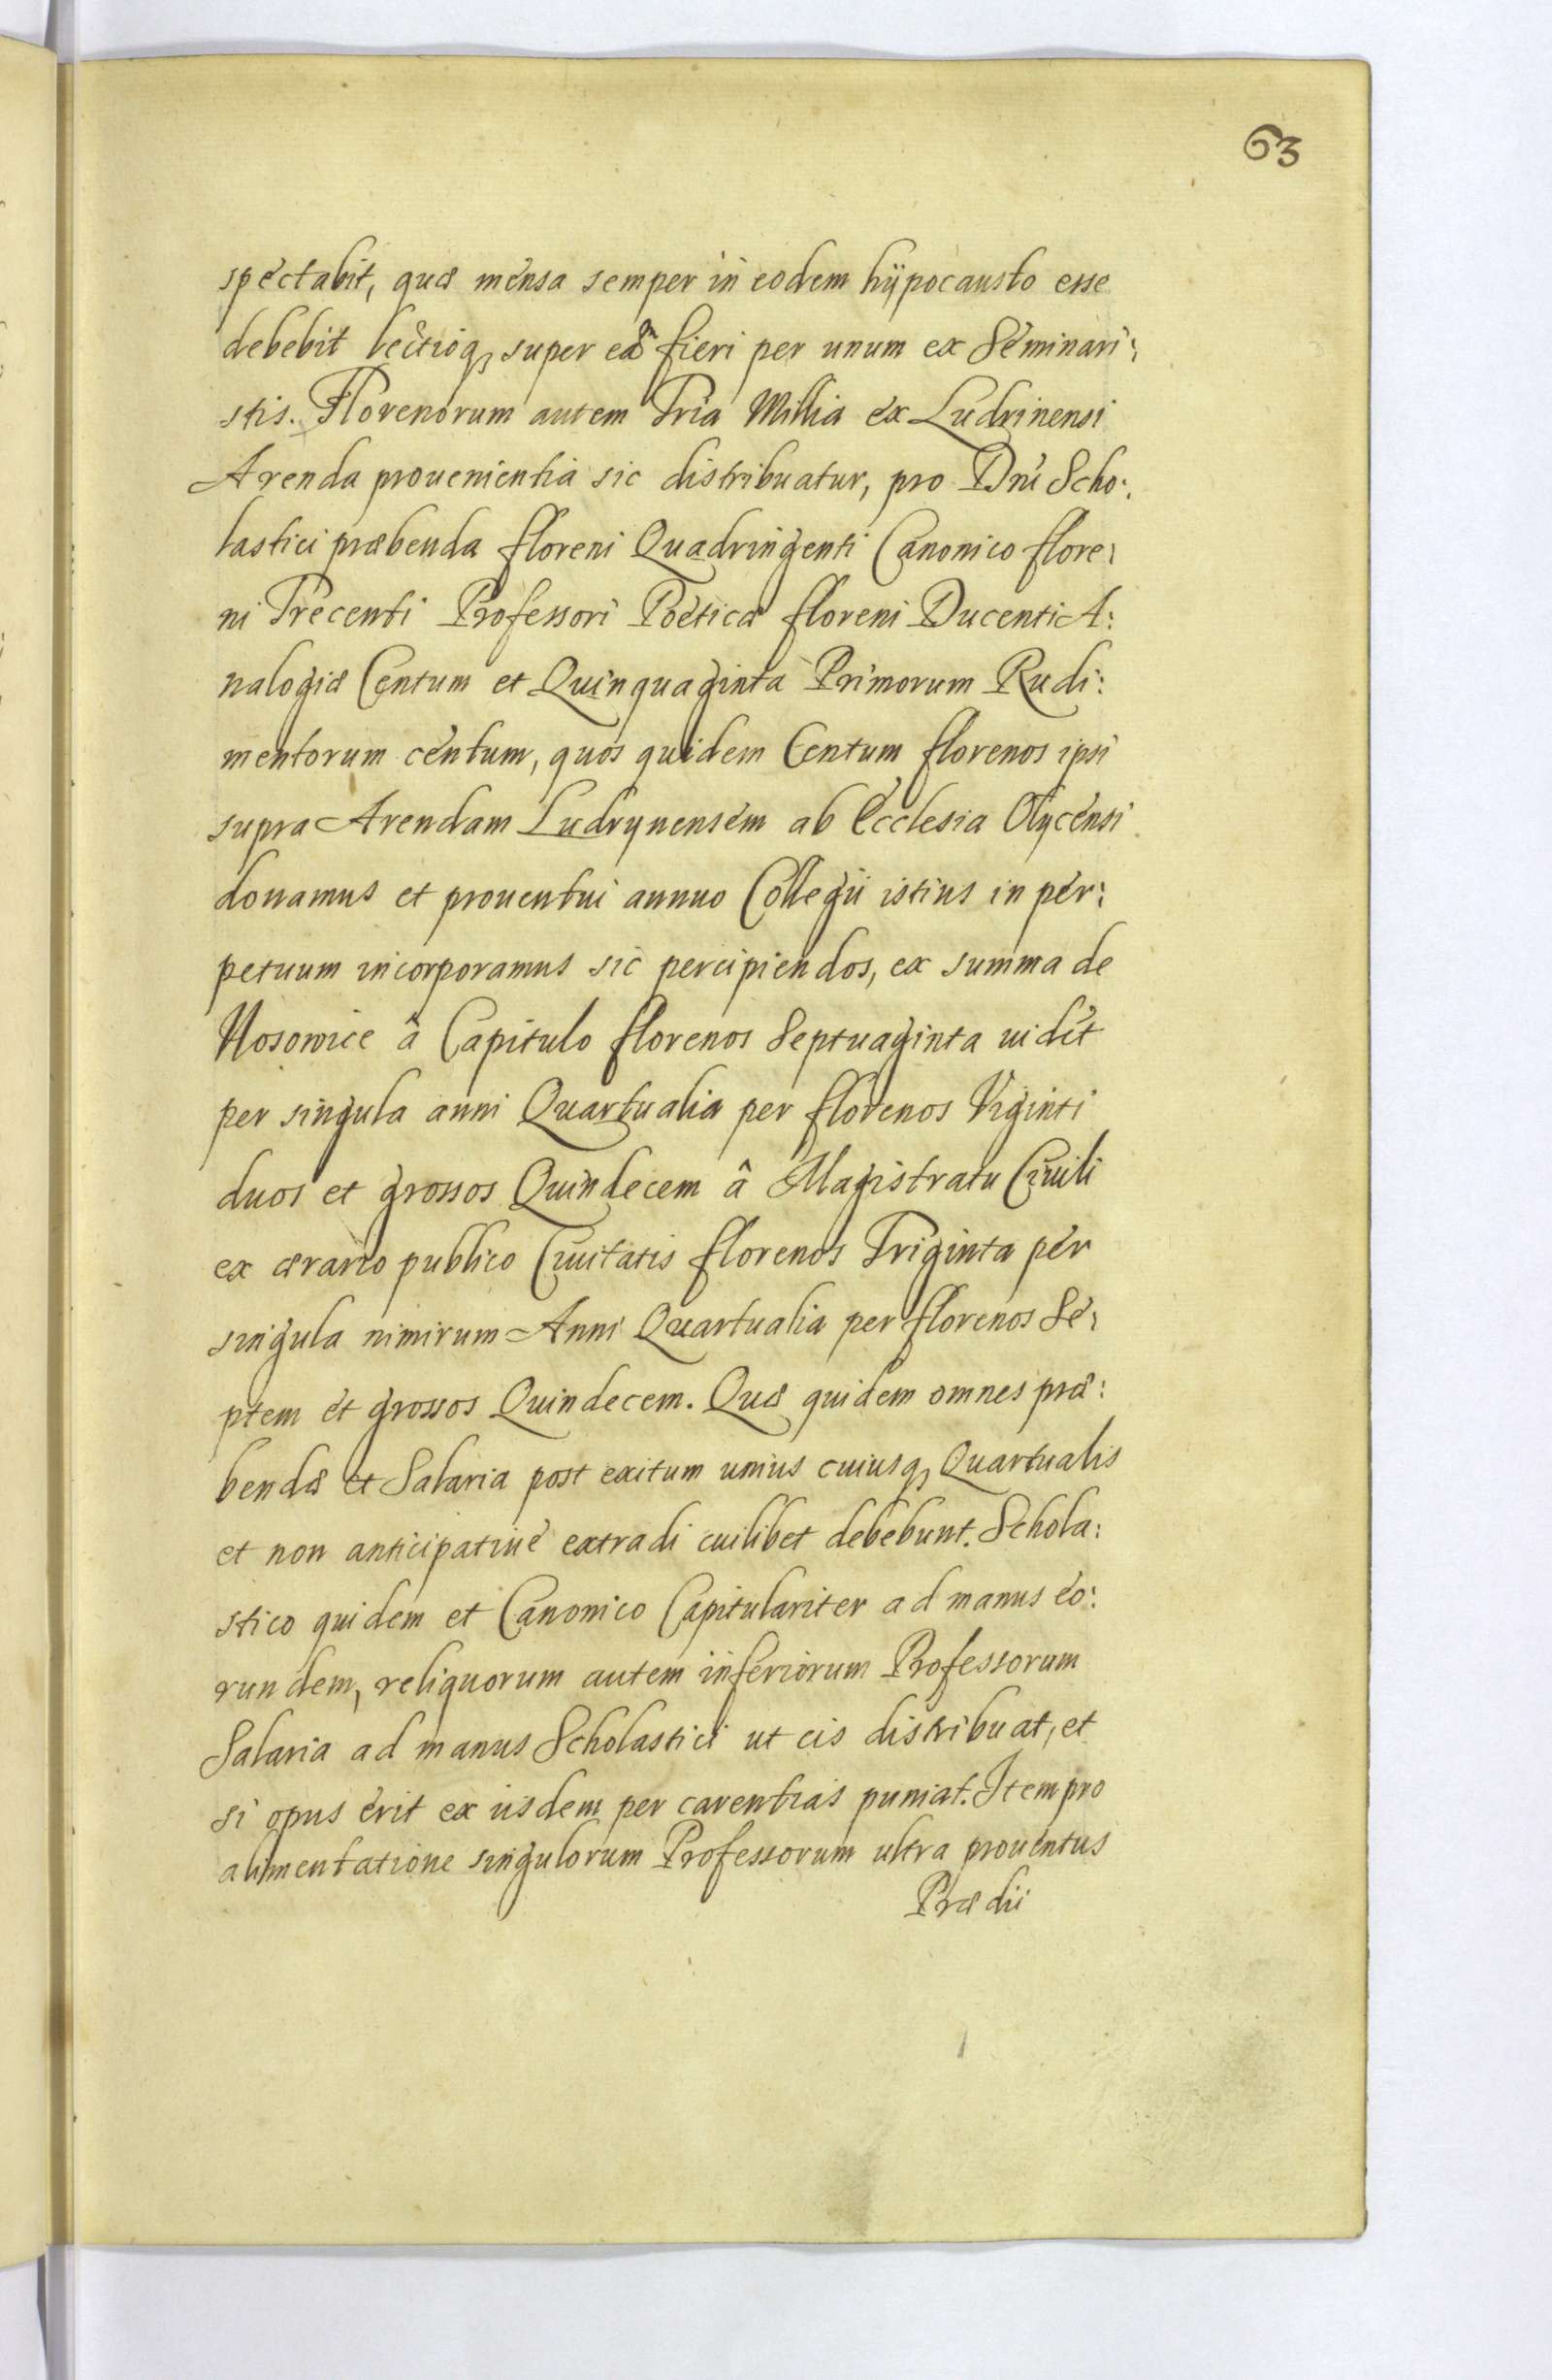 63
spectabit, quæ mensa semper in eodem hÿpocausto esse
debebit lectioq, super eâ fieri per unum ex Seminari:
stis. Florenorum autem Tria Millia ex Ludrinensi
Arenda prouenientia sic distribuatur, pro Dni Scho:
lastici præbenda floreni Quadringenti Canonico flore:
ni Trecenti Professori Poëticæ floreni Ducenti A:
nalogiæ Centum et Quinquaginta Primorum Rudi:
mentorum centum, quos quidem Centum florenos ipsi
supra Arendam Ludrynensem ab Ecclesia Olycensi
donamus et prouentui annuo Collegii istius in per:
petuum incorporamus sic percipiendos, ex summa de
Nosowice â Capitulo florenos Septuaginta uidet
per singula anni Quartualia per florenos Viginti
duos et grossos Quindecem â Magistratu Ciuili
ex ærario publico Ciuitatis florenos Triginta per
singula nimirum Anni Quartualia per florenos Se:
ptem et grossos Quindecem. Quæ quidem omnes præ:
bendæ et Salaria post exitum unius cuiusq, Quartualis
et non anticipatiue extradi cuilibet debebunt. Schola:
stico quidem et Canonico Capitulariter ad manus eo:
rundem, reliquorum autem inferiorum Professorum
Salaria ad manus Scholastici ut eis distribuat, et
si opus erit ex iisdem per carentias puniat. Item pro
alimentatione singulorum Professorum ultra prouentus
Prædii